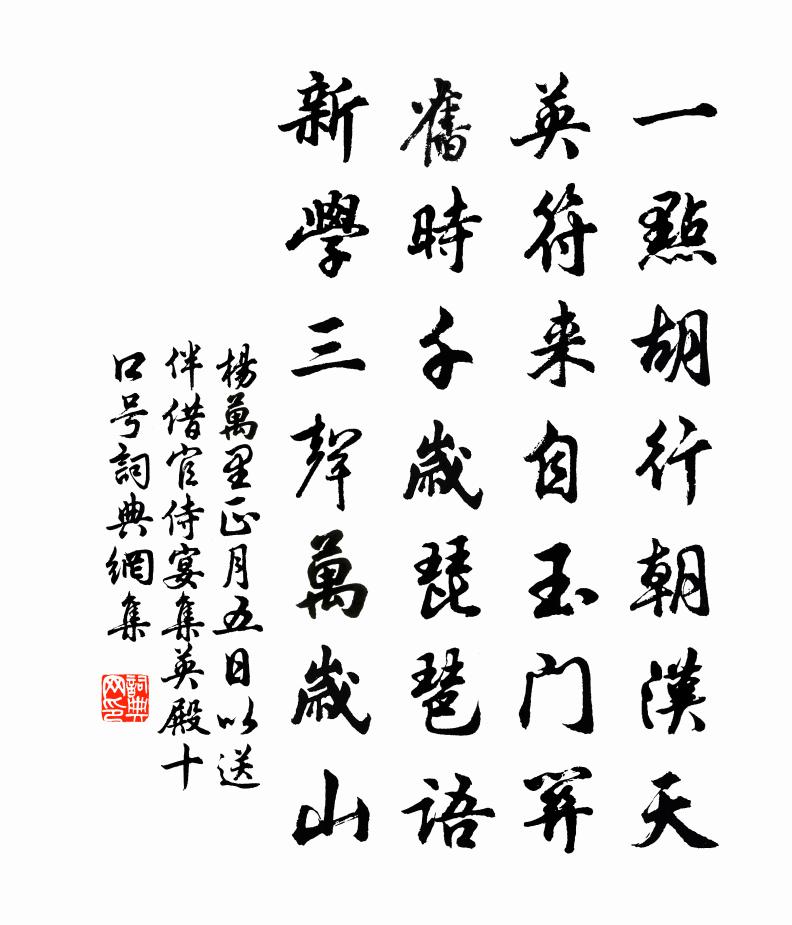 一點胡行朝漢天
英符来自玉门關
舊時千歲琵琶語
新學三聲萬歲山
楊萬里正月五日以送
伴借官侍宴集英殿十
口号詞典網集
詞典网印